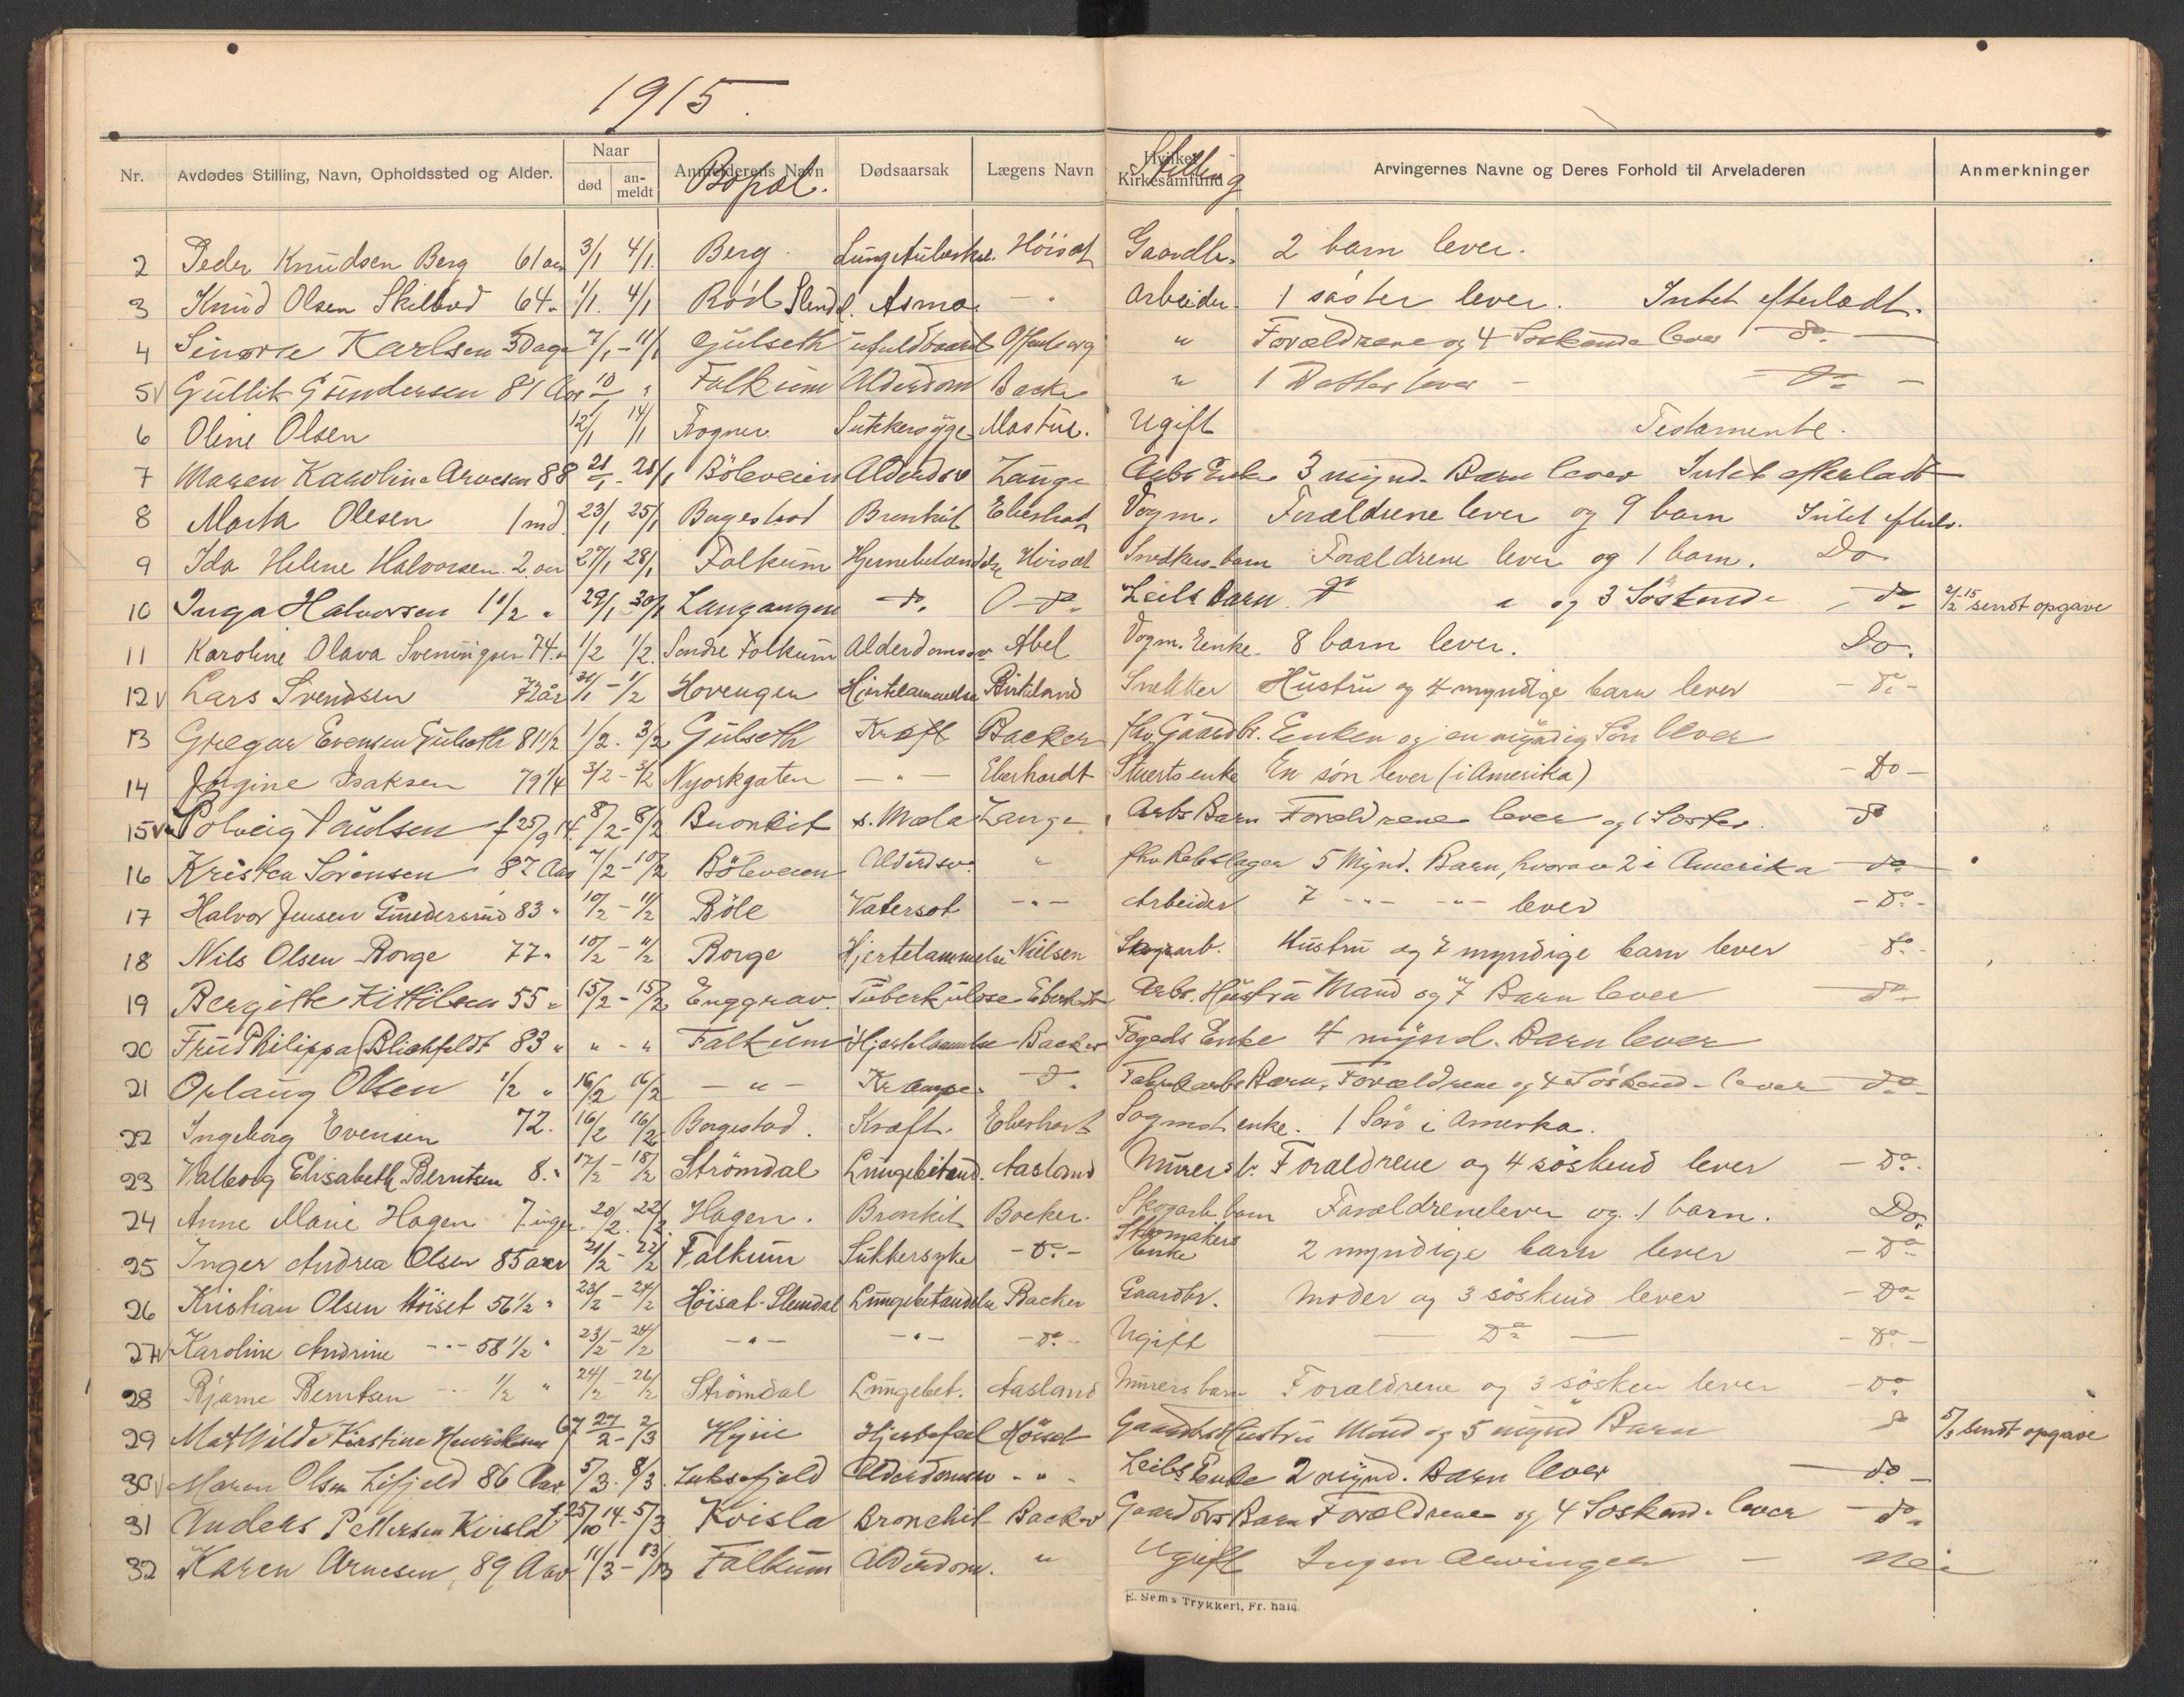 1915.
Nr. Avdødes Stilling, Navn, Opholdssted og Alder. Naar død an-meldt Anmelderens Navn Bopæl. Dødsaarsak Lægens Navn Hvilket Kirkesamfund Stilling Arvingernes Navne og Deres Forhold til Arveladeren Anmerkninger
2 Peder Knudsen Berg 61 aar 3/1 4/1. Berg. Høisæt Gaardbr. 2 barn lever.
3 Knud Olsen Skilbred 64 " 1/1. 4/1 Rød Slemd. Asma. - " Arbeider. 1 søster lever. Intet efterladt.
4 Karlsen 5 Dage 7/1 - 11/1 Gulseth ufuldbaaret " Forældrene og 4 Søskende lever - Do. -
5 v Gullik Gundersen 81 Aar 10/1 " Falkum Alderdom Backer " 1 Datter lever - - Do -
6 Oline Olsen 12/1 14/1 Frogner Sukkersyge Ugift Testamente.
7 Maren Karoline Arvesen 88 21/1 - 21/1 Böleveien Alderdsv Lange Arbs Enke 3 mynd. Barn lever Intet efterladt
8 Marta Olesen 1 md. 23/1 25/1 Borgestad Bronkit Eberhardt Vogm. Forældrene lever og 9 barn Intet efterl.
9 Ida Helene Halvorsen 2 aar 27/1 28/1 Falkum Hjernebetændelse Høisæt Snedkers barn Forældrene lever og 1 barn. Do
10 Inga Halvorsen 1 1/2 " 29/1 - 30/1 Langangen - Do. - Do - Leils Barn Do " og 3 Söskende - Do - 2/2 15 sendt opgave
11 Karoline Olava Sveningsen 74 " 1/2 1/2. Søndre Falkum Alderdomssv Abel Vogm. Enke. 8 barn lever. Do.
12 v Lars Svendsen 72 år 31/1 - 1/2 Hovengen Hjertelammelse Birkeland Snekker Hustru og 4 myndige barn lever - Do. -
13 Gregar Evensen Gulseth 81 1/2 1/2. 3/2 Gulseth Kræft Backer fhv. Gaardbr. Enken og en myndig Sön lever
14 Jørgine Isaksen 79 1/4 3/2 - 3/2 Nyorkgaten - " - Eberhardt Stuerts enke En søn lever (i Amerika) - Do -
15 v Solveig Paulsen f 25/9 14. 8/2 - 8/2 Bronkit s. Mæla Lange Arbs Barn Forældrene lever og 1 Søster. Do
16 Kristen Sörensen 87 Aar 7/2 - 10/2 Böleveien Alderdsv. " fhv. Rebslager 5 Mynd. Barn, hvorav 2 i Amerika - do -
17 Halvor Jensen Gundersrud 83 " 10/2 - 11/2 Böle Vatersot - " - Arbeider 7 - " - - " - lever - Do. -
18 Nils Olsen Borge 77 " 10/2 - 11/2 Borge Hjertelammelse Nielsen Skogsarb. Hustru og 7 myndige barn lever Do. -
19 Bergitte Kittilsen 55 " 15/2 - 15/2 Enggrav. Tuberkulose Eberhardt Arbs. Hustru Mand og 7 Barn lever - do -
20 Fru Philippa Blichfeldt 83 " " - " Falkum Hjertelammelse Backer Fogeds Enke 4 mynd. Barn lever
21 Olsen 1/2 " 16/2 16/2 - " - Krampe. Do. Fabrikarbs Barn, Forældrene og 4 Söskende lever - do -
22 Ingeborg Evensen 72. 16/2 16/2 Borgestad. Kræft. Eberhart enke. 1 Søn i Amerika.
23 Valborg Elisabeth Berntsen 8. " 17/2 - 18/2 Strömdal Lungebetænd. Aasland Murers b. Forældrene og 4 söskend lever - Do. -
24 Anne Marie Hagen 7 20/2. 22/2 Hagen. Bronkit Backer. Skogarb. barn Forældrene lever og 1 barn. Do.
25 Inger Andrea Olsen 85 aar 21/2 - 22/2 Falkum Sukkersyke - Do. - Skomakers Enke 2 myndige barn lever - Do -
26 Kristian Olsen Höiset 56 1/2 " 23/2 - 24/2 Höisæt - Slemdal Lungebetændelse Backer Gaardbr. Moder og 3 söskend lever - Do -
27 v Karoline Andrine - " - 58 1/2 " 23/2 - 24/2 - " - - " - - Do. - Ugift - Do - - Do. -
28 Bjarne Berntsen - " 1/2 " 24/2 - 26/2 Strömdal Lungebet. Aasland Murers barn Forældrene og 3 søsken lever - Do
29 Mathilde Kirstine Henriksen 67 27/2 - 2/3 Hynie Hjertefeil Höiset Gaardbrs Hustru Mand og 5 mynd Barn Do 5/3 sendt opgave
30 v Maren Olsen Lifjeld 86 Aar. 5/3 - 8/3. Alderdomssv - " - Leils Enke 2 mynd. Barn lever - do -
31 Anders Pettersen Kvisla f 25/10 14 - 5/3 Kvisla Bronchit Backer Gaardbrs Barn Forældrene og 4 Söskend. lever - do -
32 Karen Arnesen, 89 Aar 11/3 - 13/3 Falkum Alderdom. " Ugift Ingen Arvinger - Nei
E. Sems Trykkeri, Fr. hald.